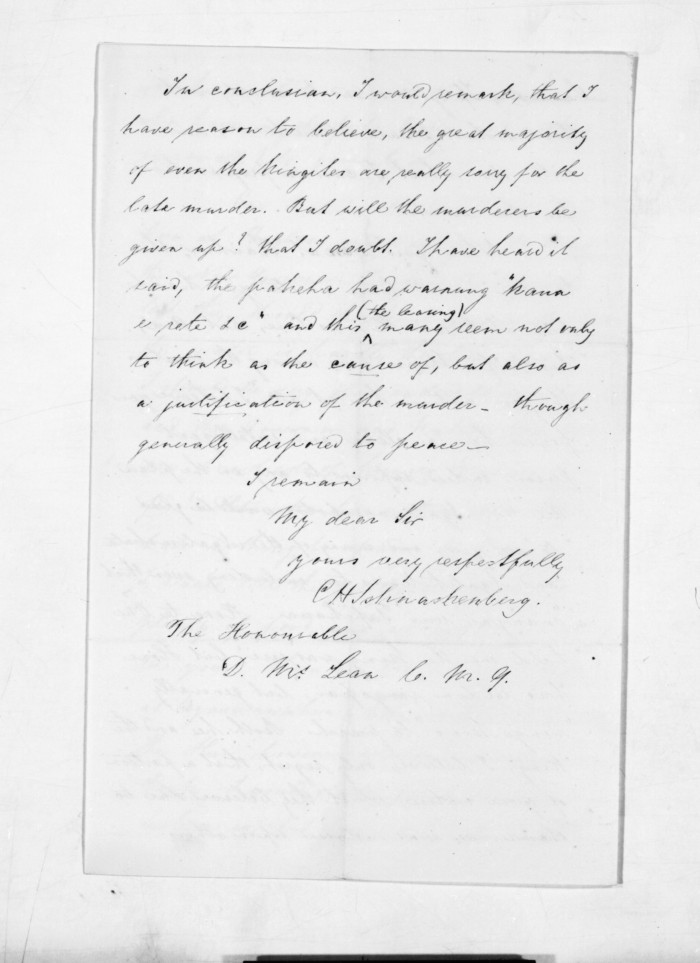 In conclusion, I would remark, that I
have reason to believe, the great majority
of even the Kingites are really sorry for the
late murder. But will the murderers be
given up? that I doubt. I have heard it
said, the pakeha had warning "kaua
e rete &c" and this (the leasing) many seem not only
to think as the cause of, but also as
a justification of the murder - though
generally disposed to peace -
I remain
My dear Sir
yours very respectfully
C H Schnackenberg.
The Honourable
D. Mc Lean C. M. G.